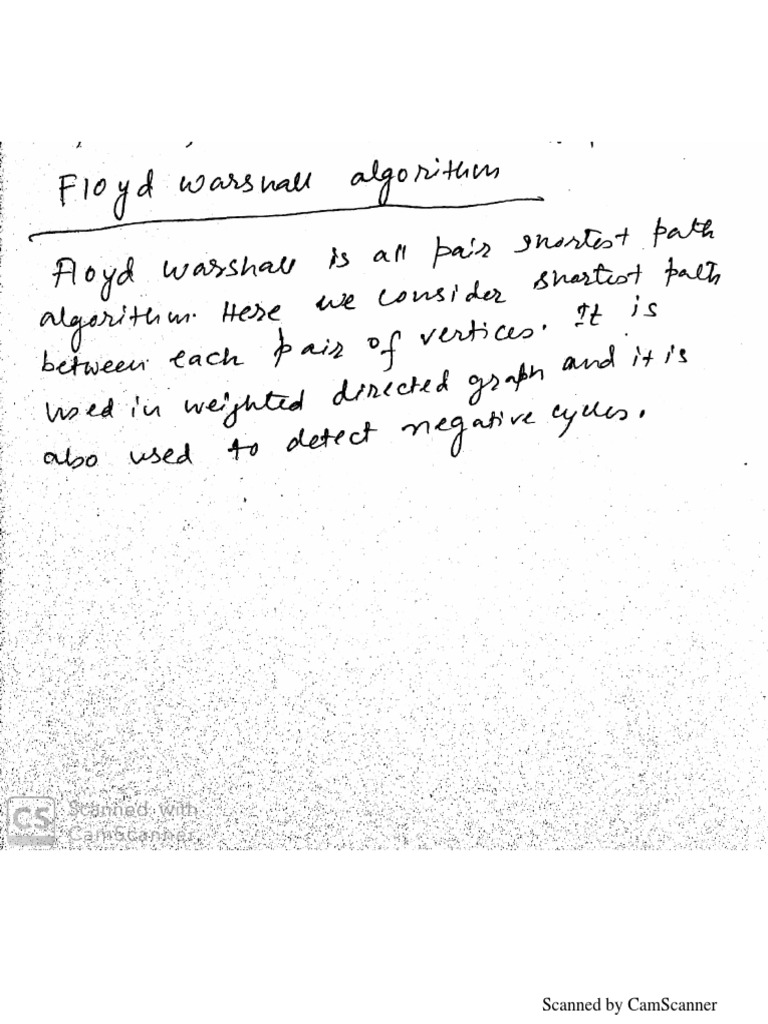 Floyd warshall algorithm
Floyd warshall is all pair shortest path
algorithm. Here we consider shortest path
between each pair of vertices. It is
used in weighted directed graph and it is
also used to detect negative cycles.
CS Scanned with
CamScanner
Scanned by CamScanner